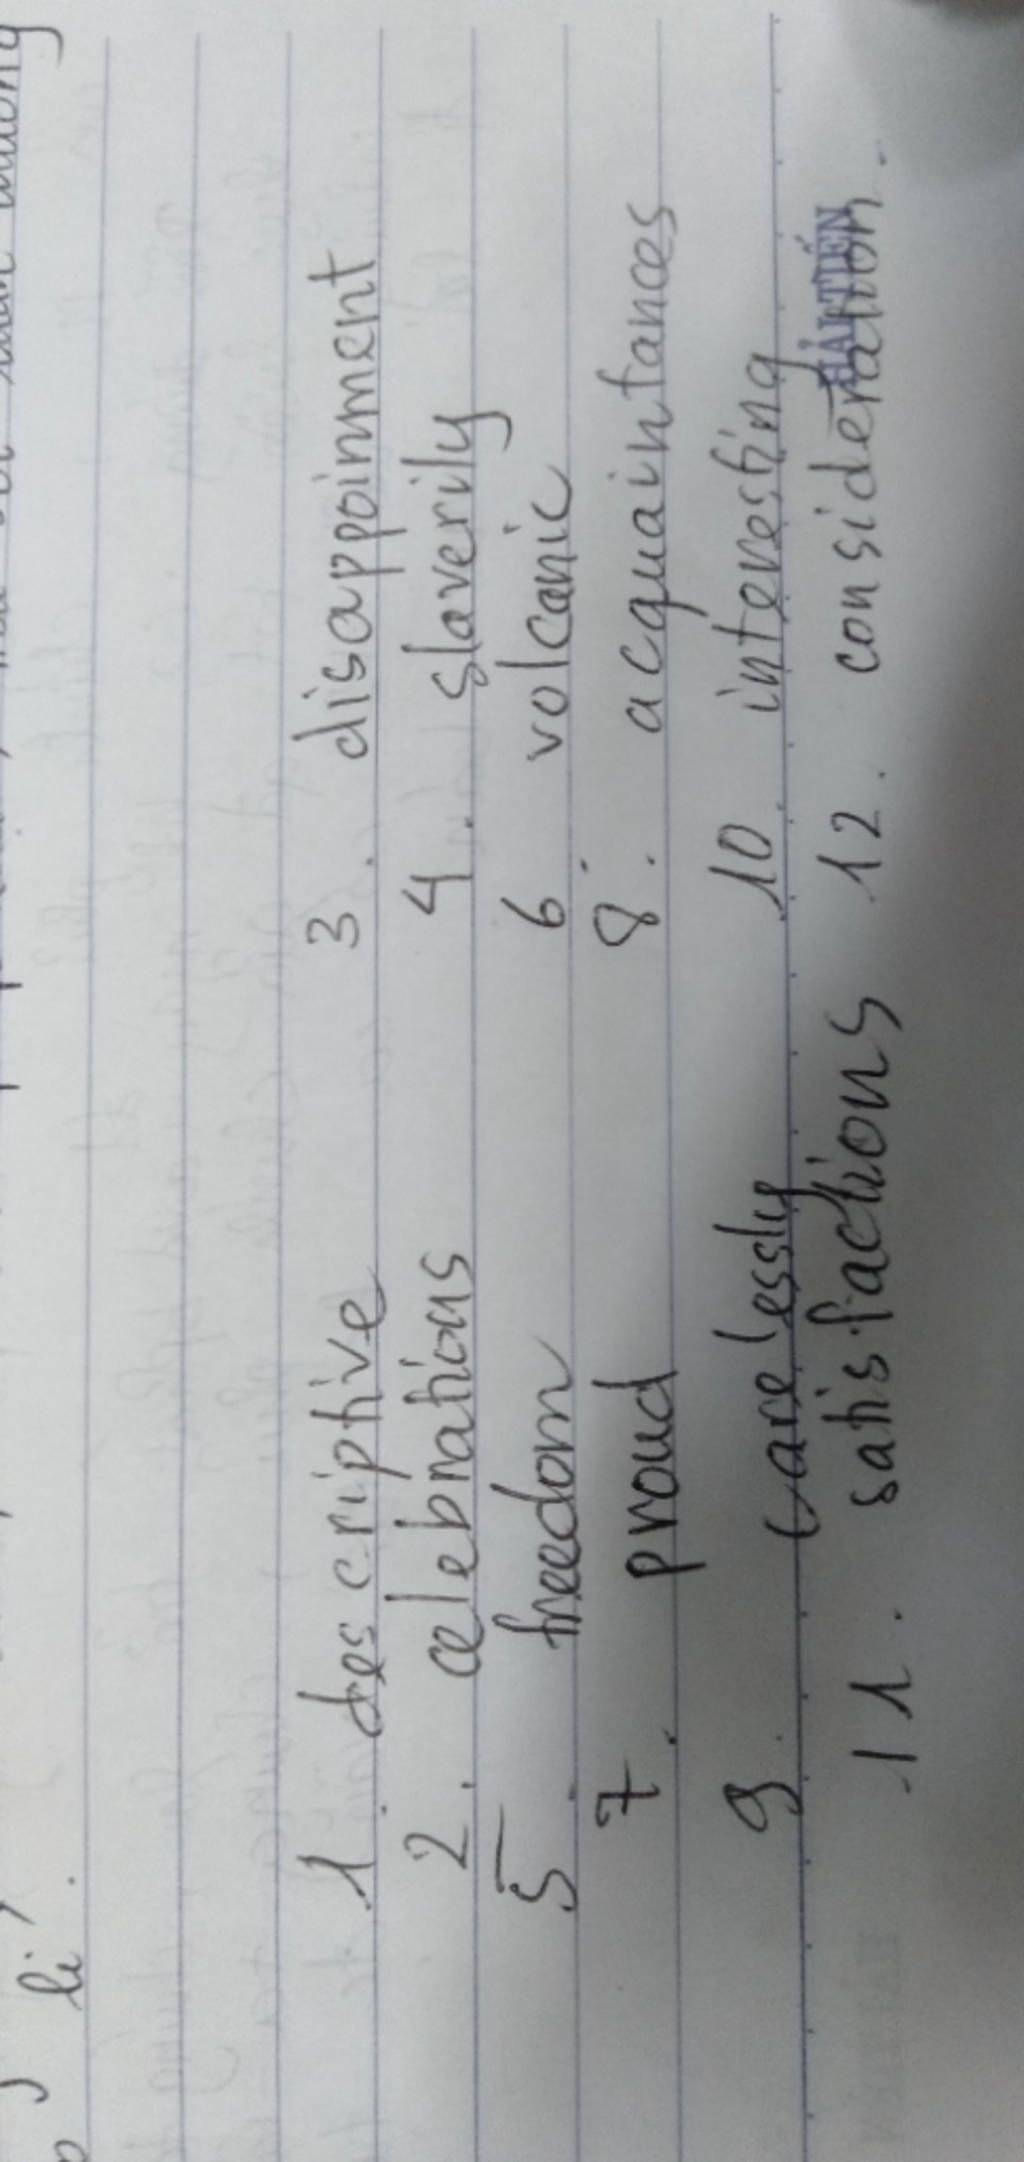 li'.
1. descriptive 3. disappoinment
2. celebrations 4. slaverily
5. freedom 6. volcanic
7. proud 8. acquaintances
9. carelessly 10. interesting
11. satisfactions 12. consideration.
HẢI TIẾN